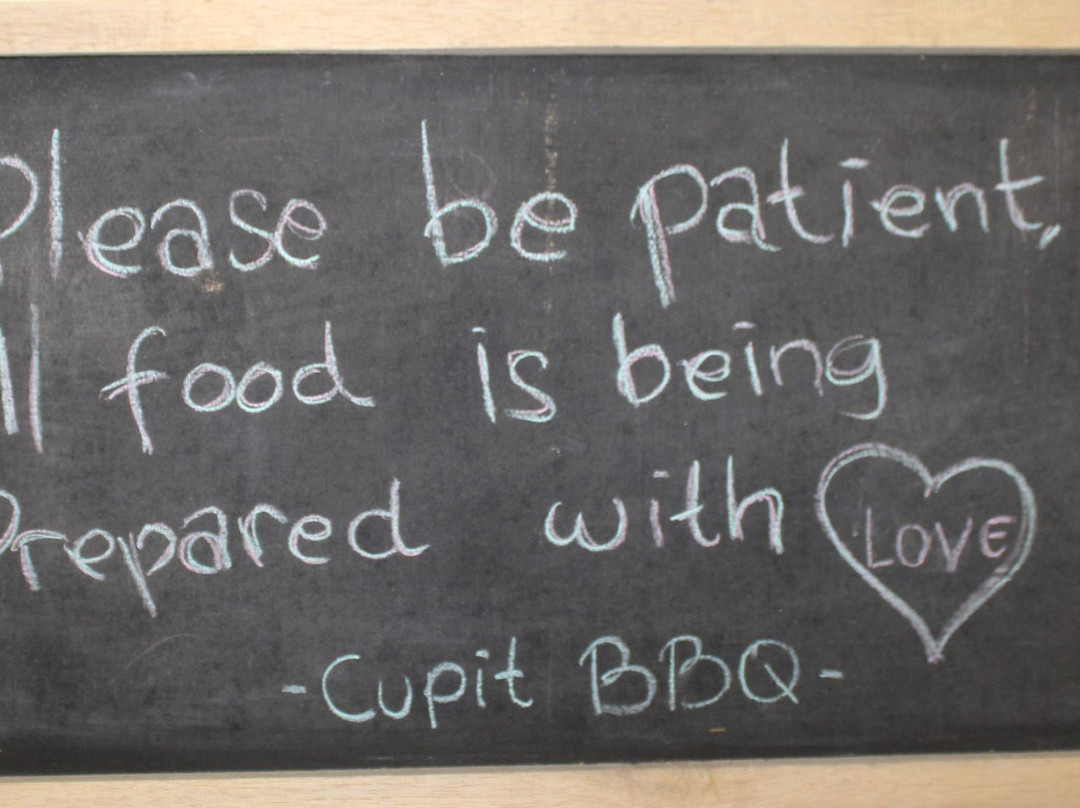 Please be patient,
All food is being
Prepared with LOVE
-Cupit BBQ-